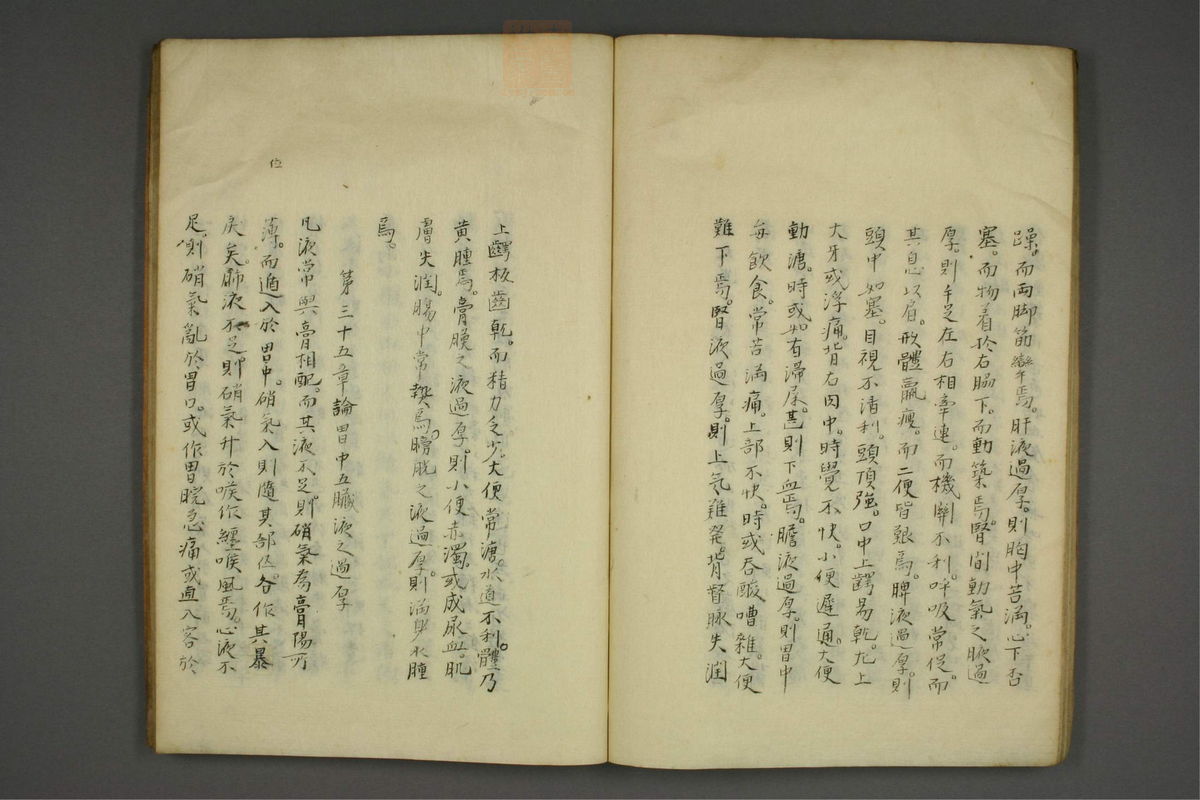 躁。而両脚筋攣焉。肝液過厚。則胸中苦満。心下否
塞。而物着於右脇下。而動築焉。腎間動氣之腋過
厚。則手足左右相牽連。而機関不利。呼吸常促。而
其息以肩。形體羸痩。而二便皆艱焉。脾液過厚。則
頭中如塞。目視不清利。頭頂強。口中上齶易乾。尢上
大牙或浮痛。背右肉中。時覺不快。小便遅通。大便
動溏。時或如有滞尿。甚則下血焉。膽液過厚。則胃中
毎飲食。常苦満痛。上部不快。時或呑酸嘈雜。大便
難下焉。腎液過厚。則上气難発。背督脉失潤
上齶板齒乾。而精力乏少。大便常溏。水道不利。體乃
黄腫焉。膏膜之液過厚。則小便赤濁。或成尿血。肌
膚失潤。腸中常熱焉。膀胱之液過厚則満身水腫
焉。
第三十五章論胃中五臓液之過厚
凡液常與膏相配。而其液不足。則硝氣為膏陽所
薄。而遁入於胃中。硝氣入則隨其部位。各作其暴
戻矣。肺液不足則硝氣升於喉作纏喉風焉。心液不
足。則硝氣亂於胃口。或作胃脘急痛或直入客於
位